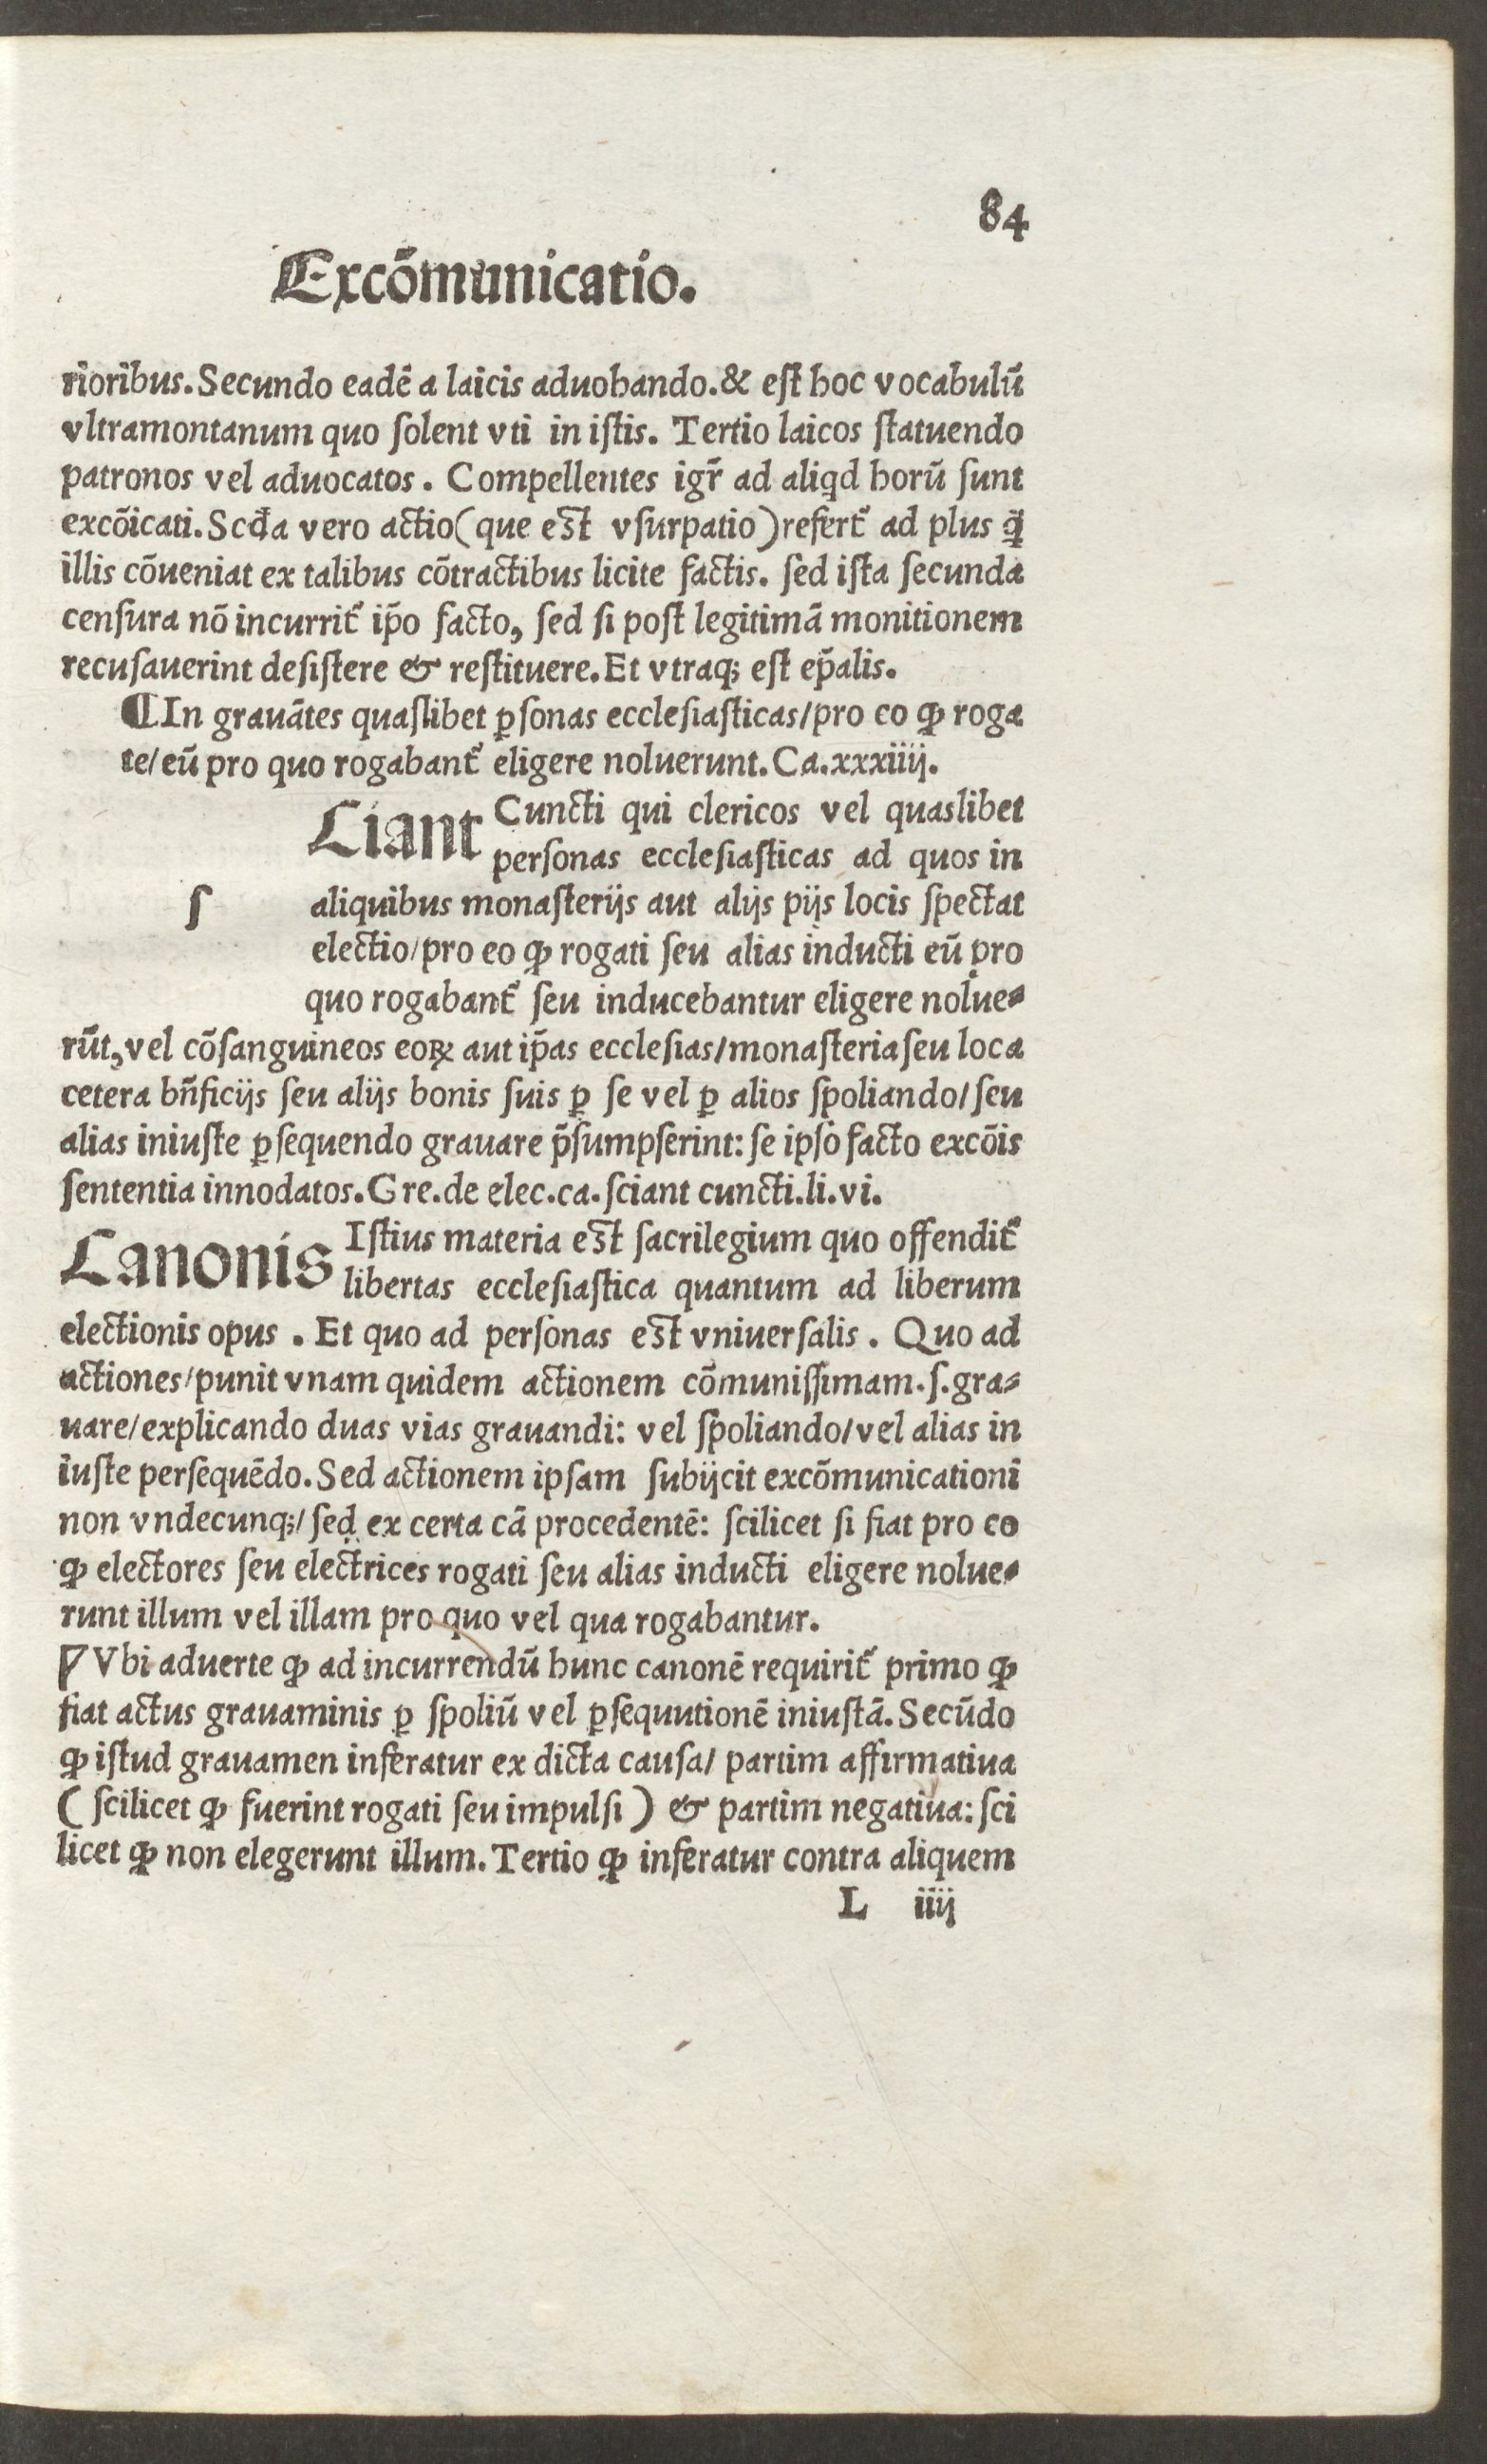 84
Excõmunicatio.
rioribus. Secundo eadẽ a laicis aduohando. & eſt hoc vocabulũ
vltramontanum quo ſolent vti in iſtis. Tertio laicos ſtatuendo
patronos vel aduocatos. Compellentes igr̃ ad aliqd horũ ſunt
excõicati. Scđa vero actio (que est vſurpatio) refert᷑ ad plus q̃
illis cõueniat ex talibus cõtractibus licite factis. ſed iſta ſecunda
cenſura nõ incurrit᷑ ip̃o facto, ſed ſi poſt legitimã monitionem
recuſauerint deſiſtere & reſtituere. Et vtraq; eſt ep̃alis.
¶ In grauãtes quaſlibet ꝑſonas eccleſiaſticas/ pro eo ꝙ roga
te/ eũ pro quo rogabant᷑ eligere noluerunt. Ca. xxxiiij.
Ciant Cuncti qui clericos vel quaslibet
perſonas eccleſiaſticas ad quos in
ſ aliquibus monaſterijs aut alijs pijs locis ſpectat
electio/ pro eo ꝙ rogati ſeu alias inducti eũ pro
quo rogabant᷑ ſeu inducebantur eligere nolue⸗
rũt, vel cõſanguineos eoꝝ aut ip̃as eccleſias/ monaſteria ſeu loca
cetera bñficijs ſeu alijs bonis ſuis ꝑ ſe vel ꝑ alios ſpoliando/ ſeu
alias iniuſte ꝑſequendo grauare p̃ſumpſerint: ſe ipſo facto excõis
ſententia innodatos. Gre. de elec. ca. ſciant cuncti. li. vi.
Canonis Iſtius materia est ſacrilegium quo offendit᷑
libertas eccleſiaſtica quantum ad liberum
electionis opus. Et quo ad perſonas est vniuerſalis. Quo ad
actiones/ punit vnam quidem actionem cõmuniſſimam. ſ. gra⸗
uare/ explicando duas vias grauandi: vel ſpoliando/ vel alias in
iuſte perſequẽdo. Sed actionem ipſam ſubijcit excõmunicationi
non vndecunq;/ ſed ex certa cã procedentẽ: ſcilicet ſi fiat pro eo
ꝙ electores ſeu electrices rogati ſeu alias inducti eligere nolue⸗
runt illum vel illam pro quo vel qua rogabantur.
¶ Vbi aduerte ꝙ ad incurrendũ hunc canonẽ requirit᷑ primo ꝙ
fiat actus grauaminis ꝑ ſpoliũ vel ꝑſequutionẽ iniuſtã. Secũdo
ꝙ iſtud grauamen inferatur ex dicta cauſa/ partim affirmatiua
( ſcilicet ꝙ fuerint rogati ſeu impulſi ) & partim negatiua: ſci
licet ꝙ non elegerunt illum. Tertio ꝙ inferatur contra aliquem
L iiij